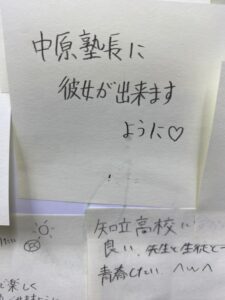 中原塾長に
彼女が出来ます
ように♡
知立高校に
良い、先生と生徒と
青春したい。へwへ
楽しく